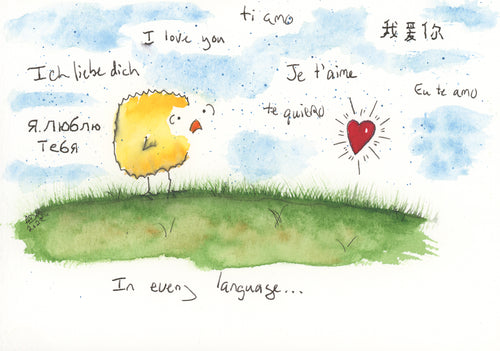 ti amo
I love you
我爱你
Ich liebe dich
Je t'aime
Eu te amo
te quiero
Я люблю
тебя
In every language...